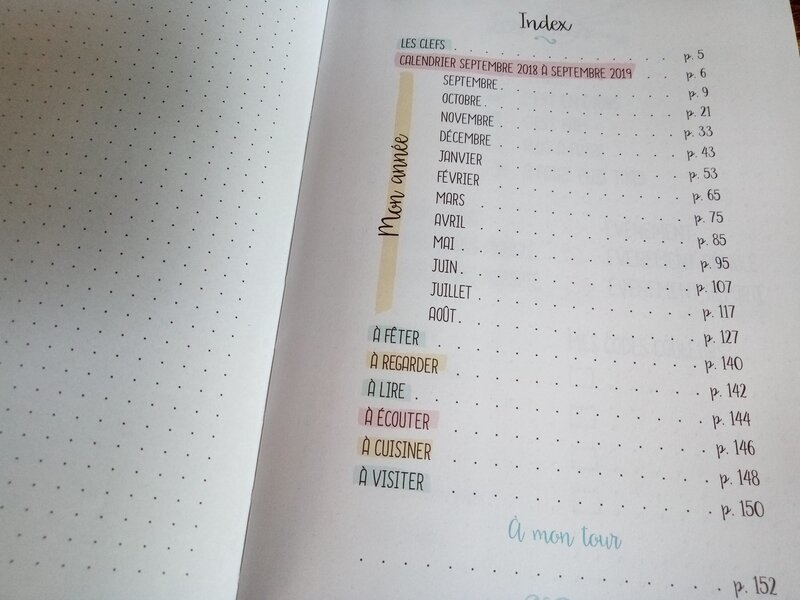 Index
LES CLEFS . . . . . . . . . . p. 5
CALENDRIER SEPTEMBRE 2018 À SEPTEMBRE 2019 . . . p. 6
Mon année
SEPTEMBRE . . . . . . . . . . p. 9
OCTOBRE . . . . . . . . . . p. 21
NOVEMBRE . . . . . . . . . . p. 33
DÉCEMBRE . . . . . . . . . . p. 43
JANVIER . . . . . . . . . . p. 53
FÉVRIER . . . . . . . . . . p. 65
MARS . . . . . . . . . . p. 75
AVRIL . . . . . . . . . . p. 85
MAI . . . . . . . . . . p. 95
JUIN . . . . . . . . . . p. 107
JUILLET . . . . . . . . . . p. 117
AOÛT . . . . . . . . . . p. 127
À FÊTER . . . . . . . . . . p. 140
À REGARDER . . . . . . . . . . p. 142
À LIRE . . . . . . . . . . p. 144
À ÉCOUTER . . . . . . . . . . p. 146
À CUISINER . . . . . . . . . . p. 148
À VISITER . . . . . . . . . . p. 150
À mon tour
. . . . . . . . . . p. 152